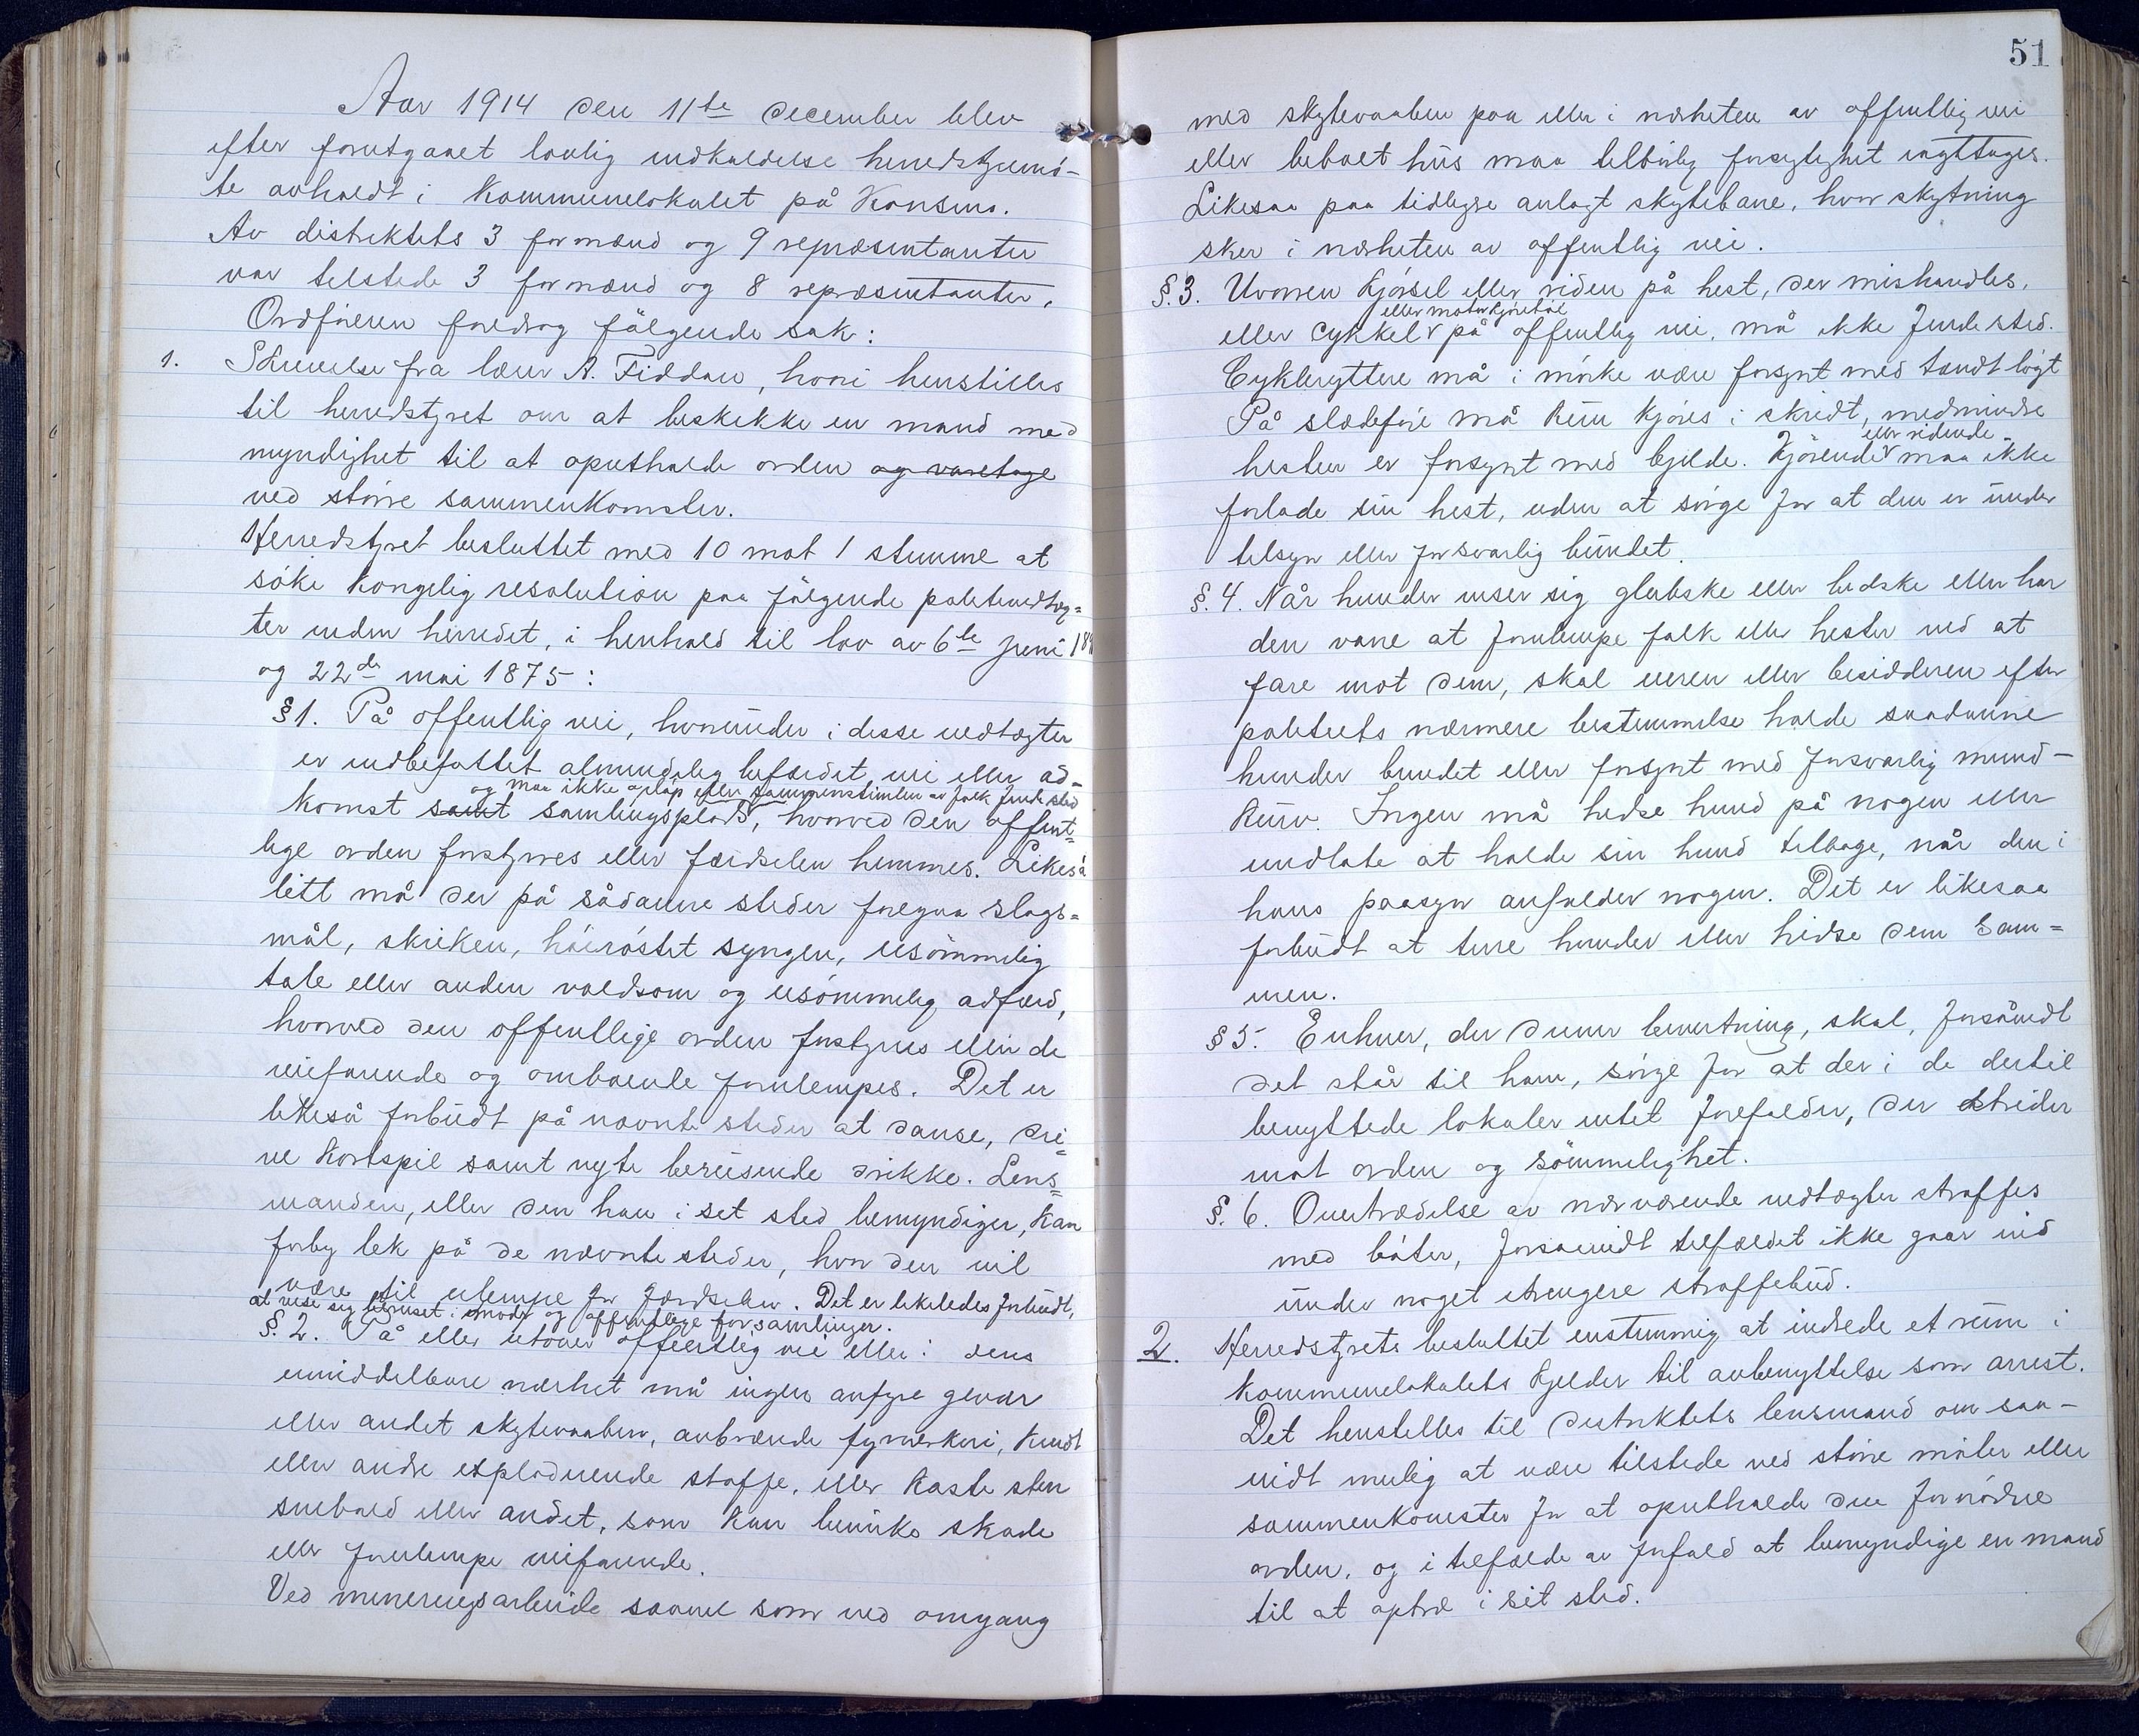 Aar 1914 den 11te december blev
efter forutgaaet lovlig indkaldelse herredstyremö-
te avholdt i Kommunelokalet på Konsmo.
Av distriktets 3 formænd og 9 repræsentanter
var tilstede 3 formænd og 8 repræsentanter.
Ordföreren foredrog fölgende sak:
1. Skrivelse fra lærer A. Fiddan, hvori henstilles
til herredstyret om at beskikke en mand med
myndighet til at oprethalde orden og varetage
ved större sammenkomster.
Herredstyret besluttet med 10 mot 1 stemme at
söke kongelig resolution paa fölgende politivedtæg=
ter inden herredet, i henhold til lov av 6te juni 18
og 22de mai 1875:
§1. På offentlig vei, hvorunder i disse vedtægter
er indbefattet almindelig befærdet vei eller ad-
og maa ikke opløp eller sammenstimlen av folk finde sted
komst samt samlingsplads, hvorved den offent=
lige orden forstyrres eller færdselen hemmes. Likeså
litt må der på sådanne steder foregaa slags=
mål, skriken, höiröstet syngen, usömmelig
tale eller anden voldsom og usömmelig adfærd,
hvorved den offentlige orden forstyrres eller de
veifarende og omboende forulempes. Det er
likeså forbudt på nævnte steder at danse, dri=
ve kortspil samt nyte berusende drikke. Lens=
manden, eller den han i set sted bemyndiger, kan
forby lek på de nævnte steder, hvor den vil
være til ulempe for færdselen. Det er likeledes forbudt,
at vise sig beruset i möder og offentlige forsamlinger.
§. 2. På eller utover offentlig vei eller i dens
umiddelbare nærhet må ingen avfyre gevær
eller andet skytevaaben, avbrænde fyrverkeri, krudt
eller andre exploderende stoffe, eller kaste sten
snebold eller andet, som kan bevirke skade
eller forulempe veifarende.
Ved mineringsarbeide saavel som ved omgang
51
med skytevaaben paa eller i nærheten av offentlig vei
eller beboet hus maa tilbörlig forsiglighet iagttages.
Likesaa paa tidligere anlagt skytebane, hvor skytning
sker i nærheten av offentlig vei.
§. 3. Uvorren kjörsel eller riden på hest, der mishandles,
eller motorkjöretöi
eller cykkel på offentlig vei, må ikke finde sted.
Cykleryttere må i mörke være forsynt med tændt lögt
På slædeföre må kun kjöres i skridt, medmindre
eller ridende
hesten er forsynt med bjelde. Kjörende maa ikke
forlade sin hest, uden at sörge for at den er under
tilsyn eller forsvarlig bundet.
§. 4. Når hunder viser sig glubske eller bidske eller har
den vane at forulempe folk eller hester ved at
fare mot dem, skal eieren eller besidderen efter
politiets nærmere bestemmelse holde saadanne
hunder bundet eller forsynt med forsvarlig mund-
kurv. Ingen må hidse hund på nogen eller
undlate at holde sin hund tilbage, når den i
hans paasyn anfalder nogen. Det er likesaa
forbudt at terre hunder eller hidse dem sam=
men.
§ 5. Enhver, der driver bevertning, skal, forsåvidt
det står til ham, sörge for at der i de dertil
benyttede lokaler intet forefalder, der strider
mot orden og sömmelighet.
§. 6. Overtrædelse av nærværende vedtægter straffes
med böter, forsaavidt tilfældet ikke gaar ind
under noget strengere straffebud.
2. Herredstyrets besluttet enstemmig at indrede et rum i
kommunelokalets kjelder til avbenyttelse som arrest.
Det henstilles til distriktets lensmand om saa-
vidt mulig at være tilstede ved större möter eller
sammenkomster for at oprethalde den fornödne
orden, og i tilfælde av forfald at bemyndige en mand
til at optræ i sit sted.